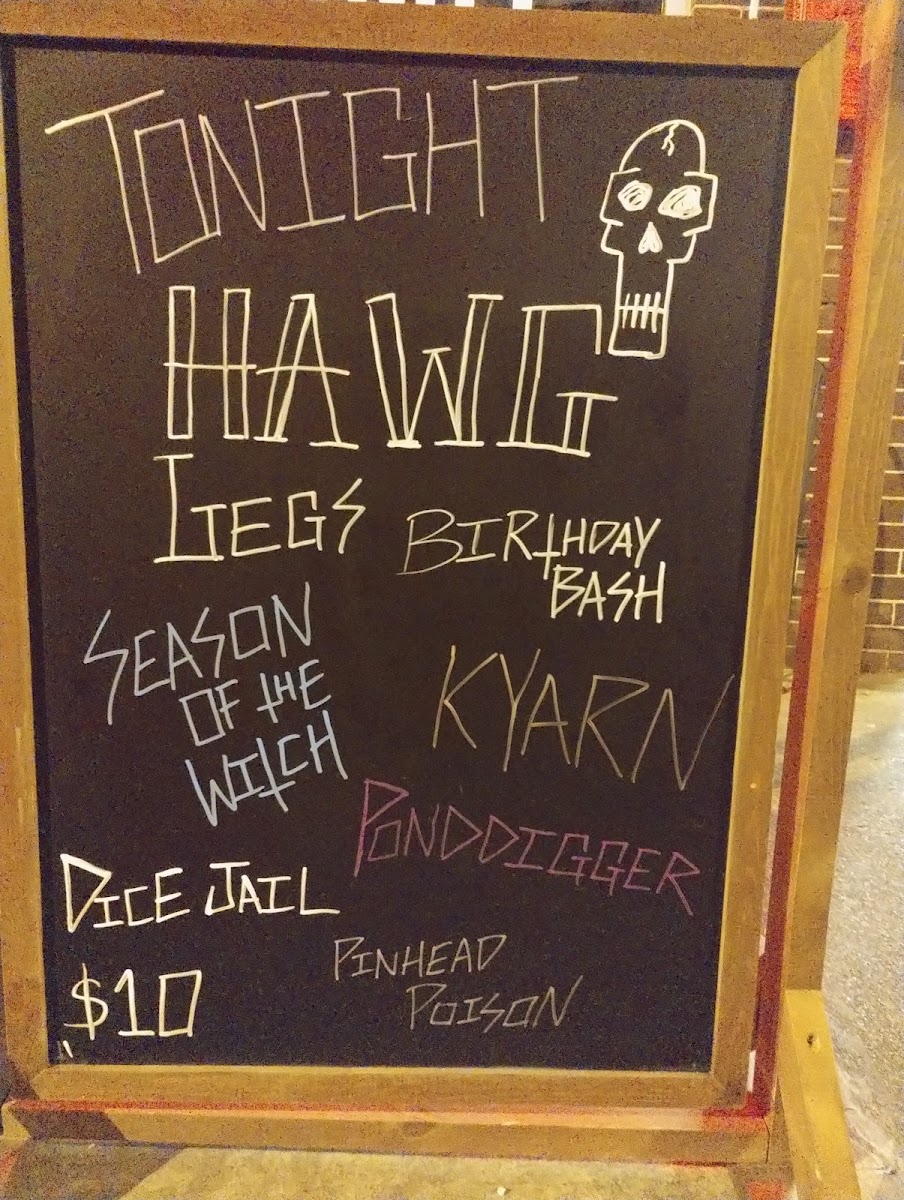 TONIGHT
HAWG
LEGS
BIRTHDAY
BASH
SEASON
OF THE
WITCH
KYARN
PONDDIGGER
DICE JAIL
PINHEAD
POISON
$10